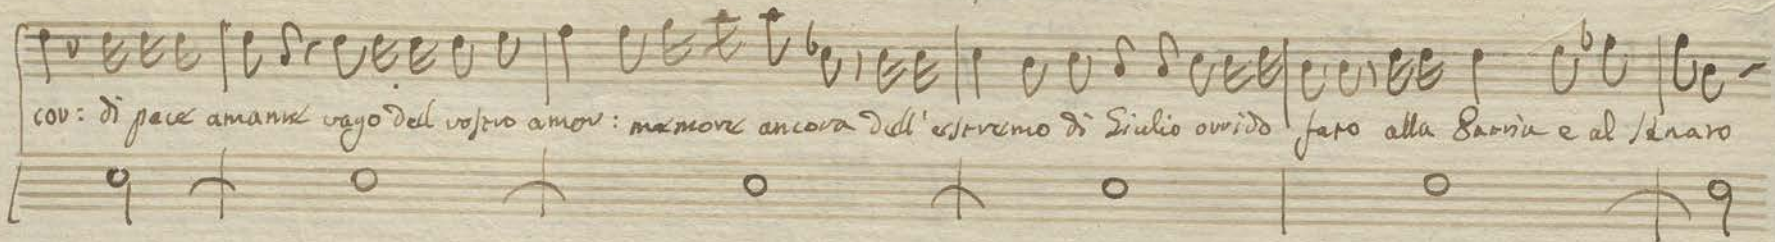 cor: di pace amante vago del vostro amor: memore ancora dell'estremo di Giulio orrido fato alla Patria e al senato